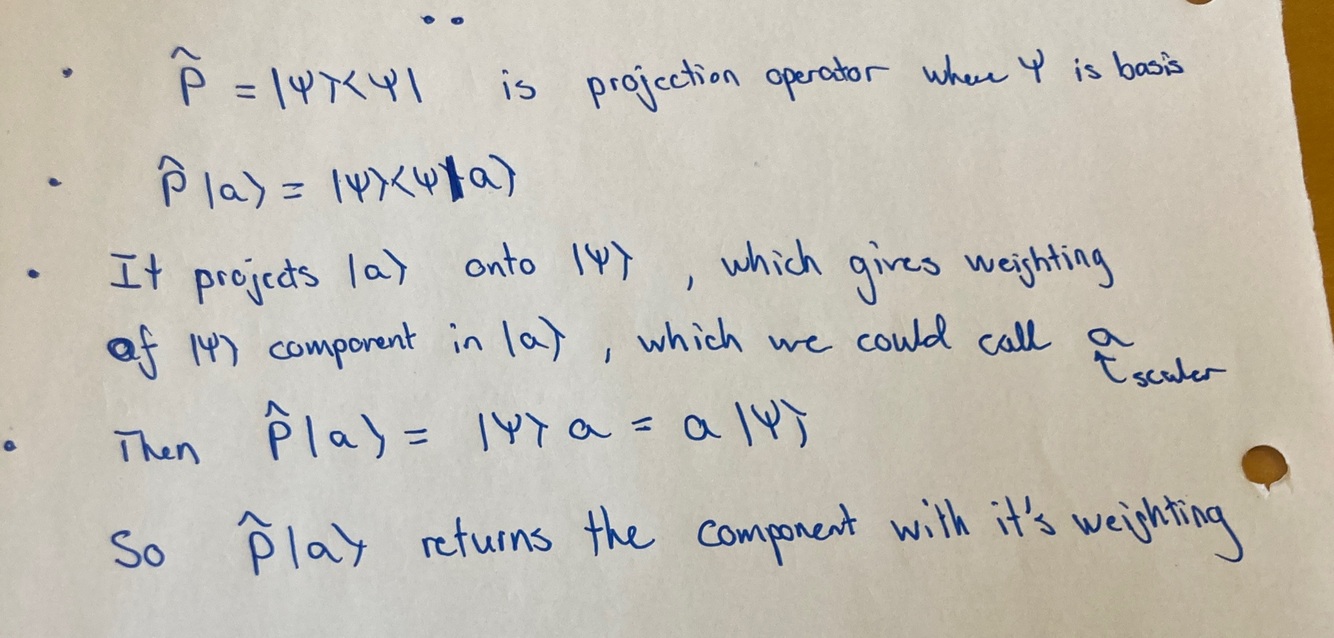 • P̂ = |Ψ><Ψ| is projection operator where Ψ is basis
• P̂ |a> = |Ψ><Ψ|a>
• It projects |a> onto |Ψ>, which gives weighting
of |Ψ> component in |a>, which we could call a
↑ scalar
• Then P̂|a> = |Ψ> a = a |Ψ>
So P̂|a> returns the component with it's weighting